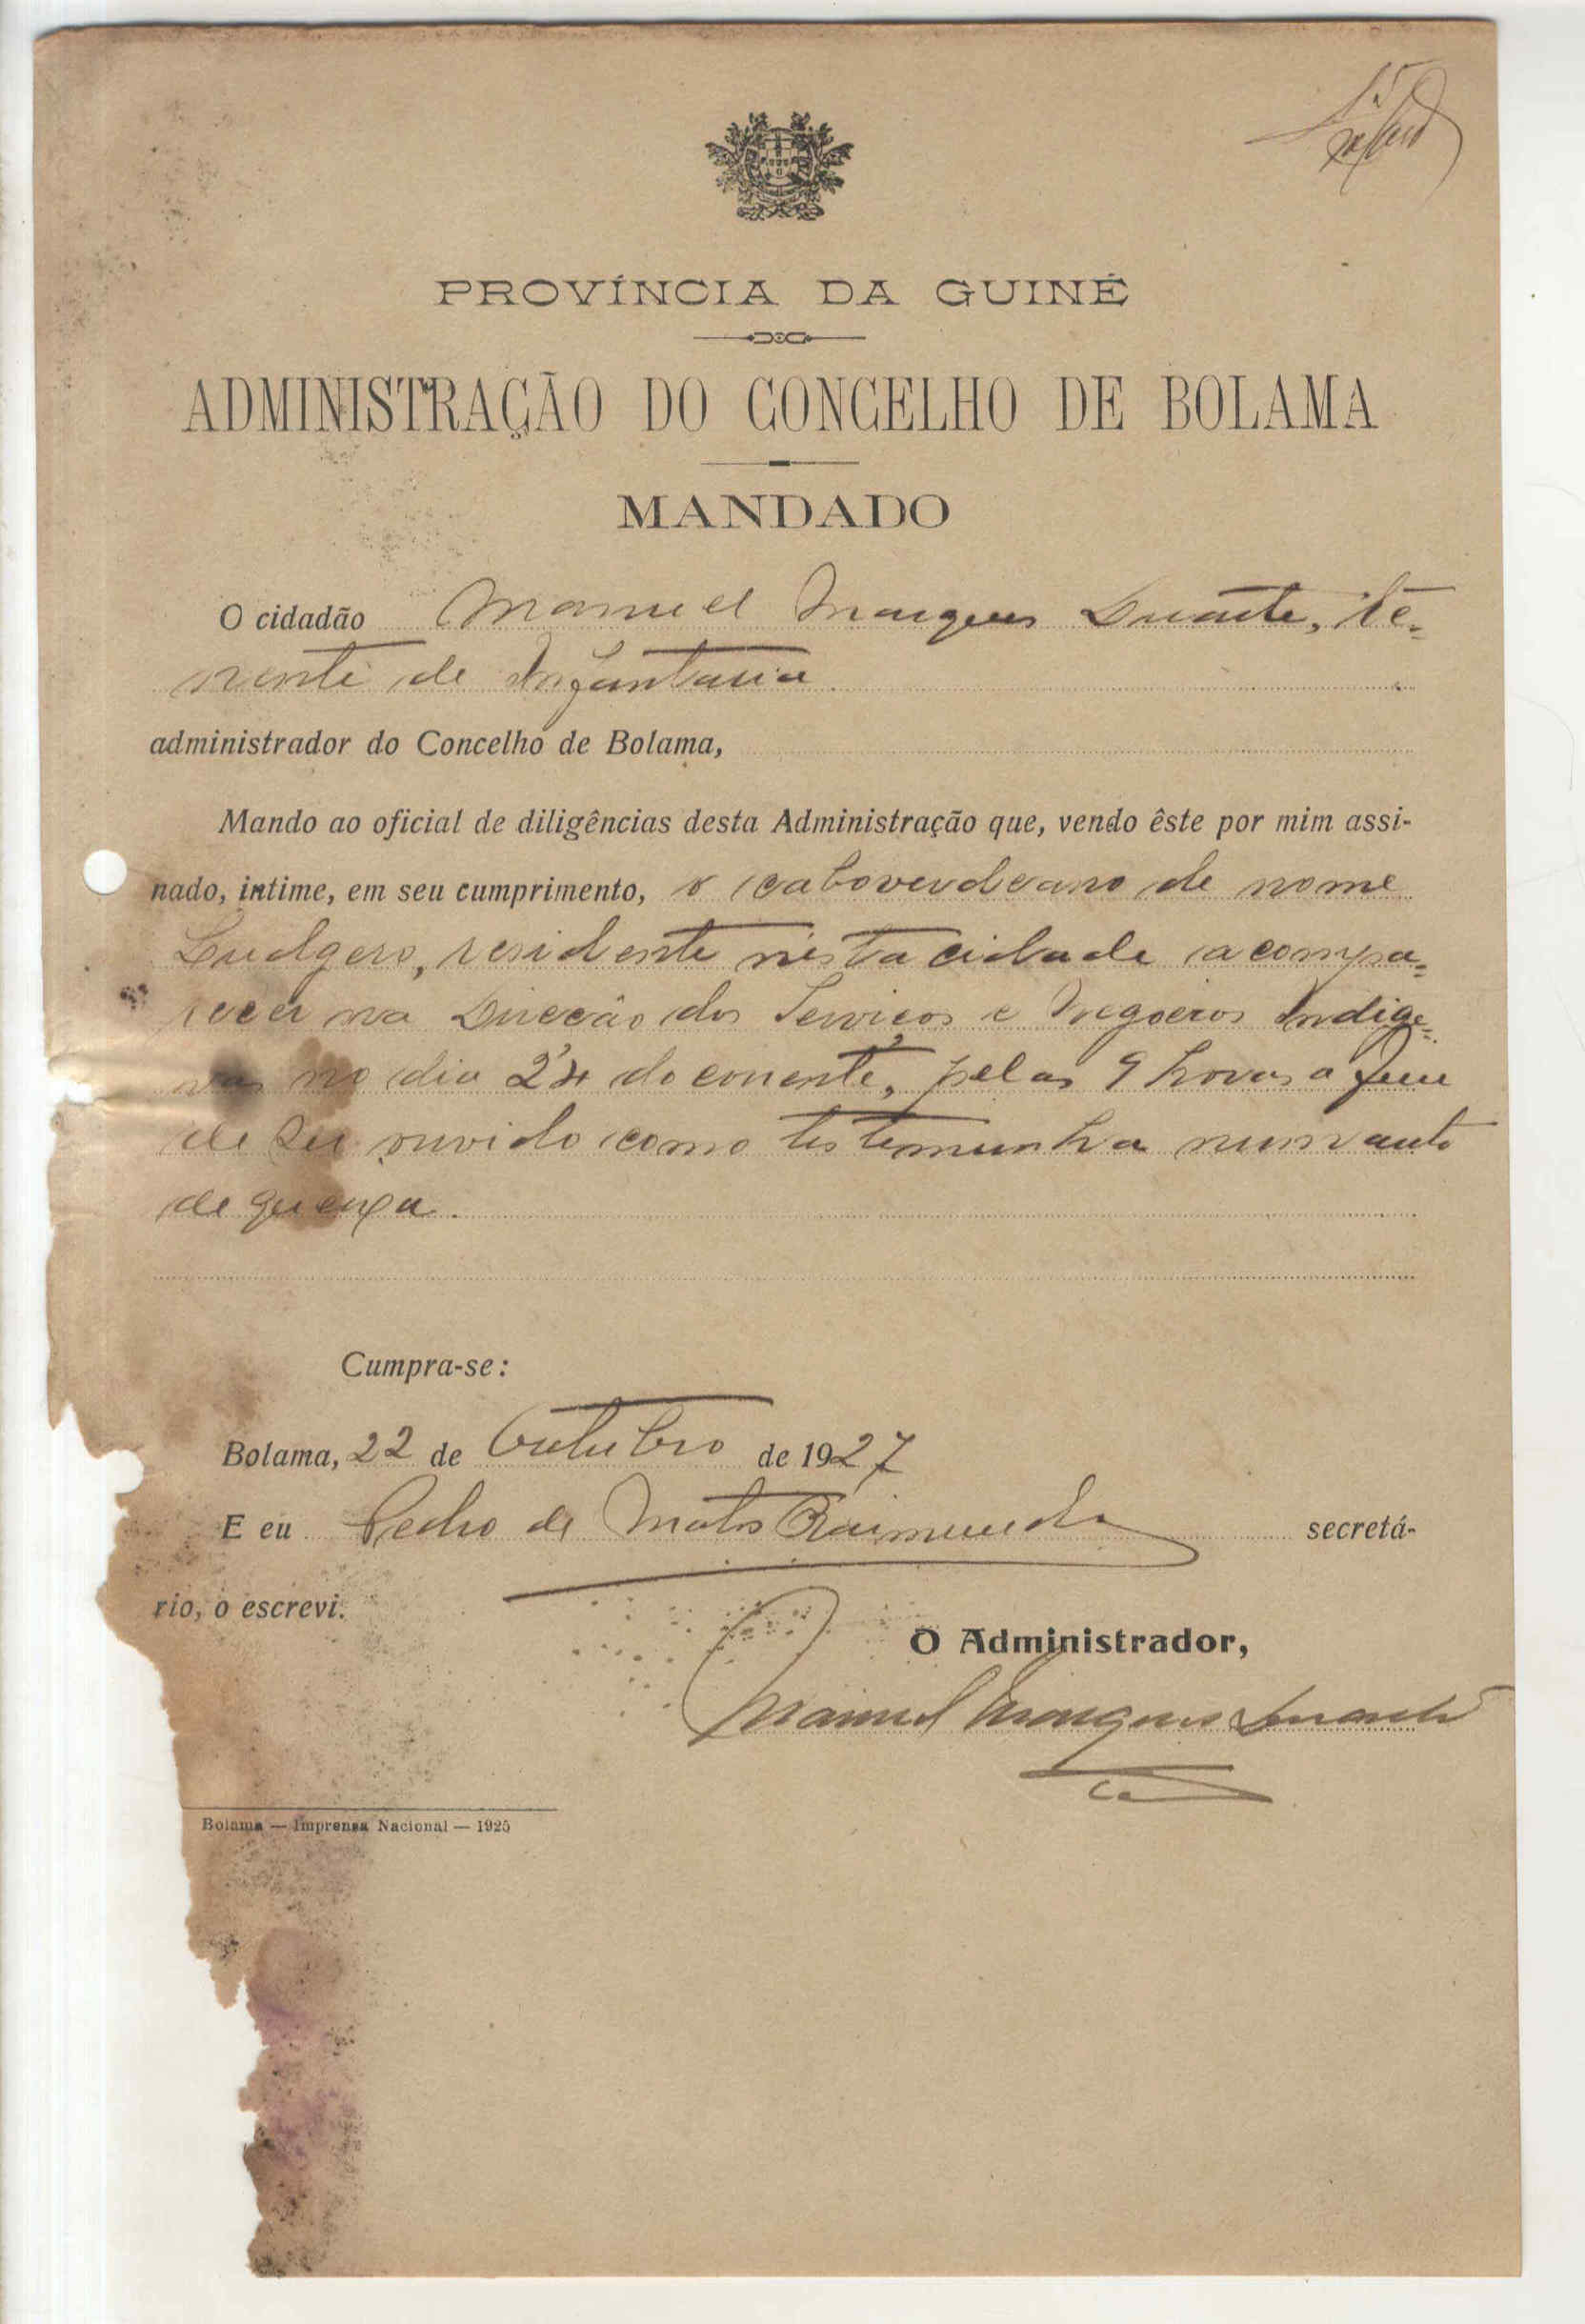 PROVÍNCIA DA GUINÉ
ADMINISTRAÇÃO DO CONCELHO DE BOLAMA
MANDADO
O cidadão Manuel Marques Duarte, te-
nente de Infantaria
administrador do Concelho de Bolama,
Mando ao oficial de diligências desta Administração que, vendo êste por mim assi-
nado, intime, em seu cumprimento, o caboverdeano de nome
Ludgero, residente nesta cidade a compa-
recer na Direcção dos Serviços e Negocios Indige-
nas no dia 24 do corrente, pelas 9 horas a fim
de ser ouvido como testemunha num auto
de queixa.
Cumpra-se:
Bolama, 22 de Outubro de 1927
E eu Pedro de Matos Raimundo secretá-
rio, o escrevi.
O Administrador,
Manuel Marques Duarte
Bolama — Imprensa Nacional — 1925